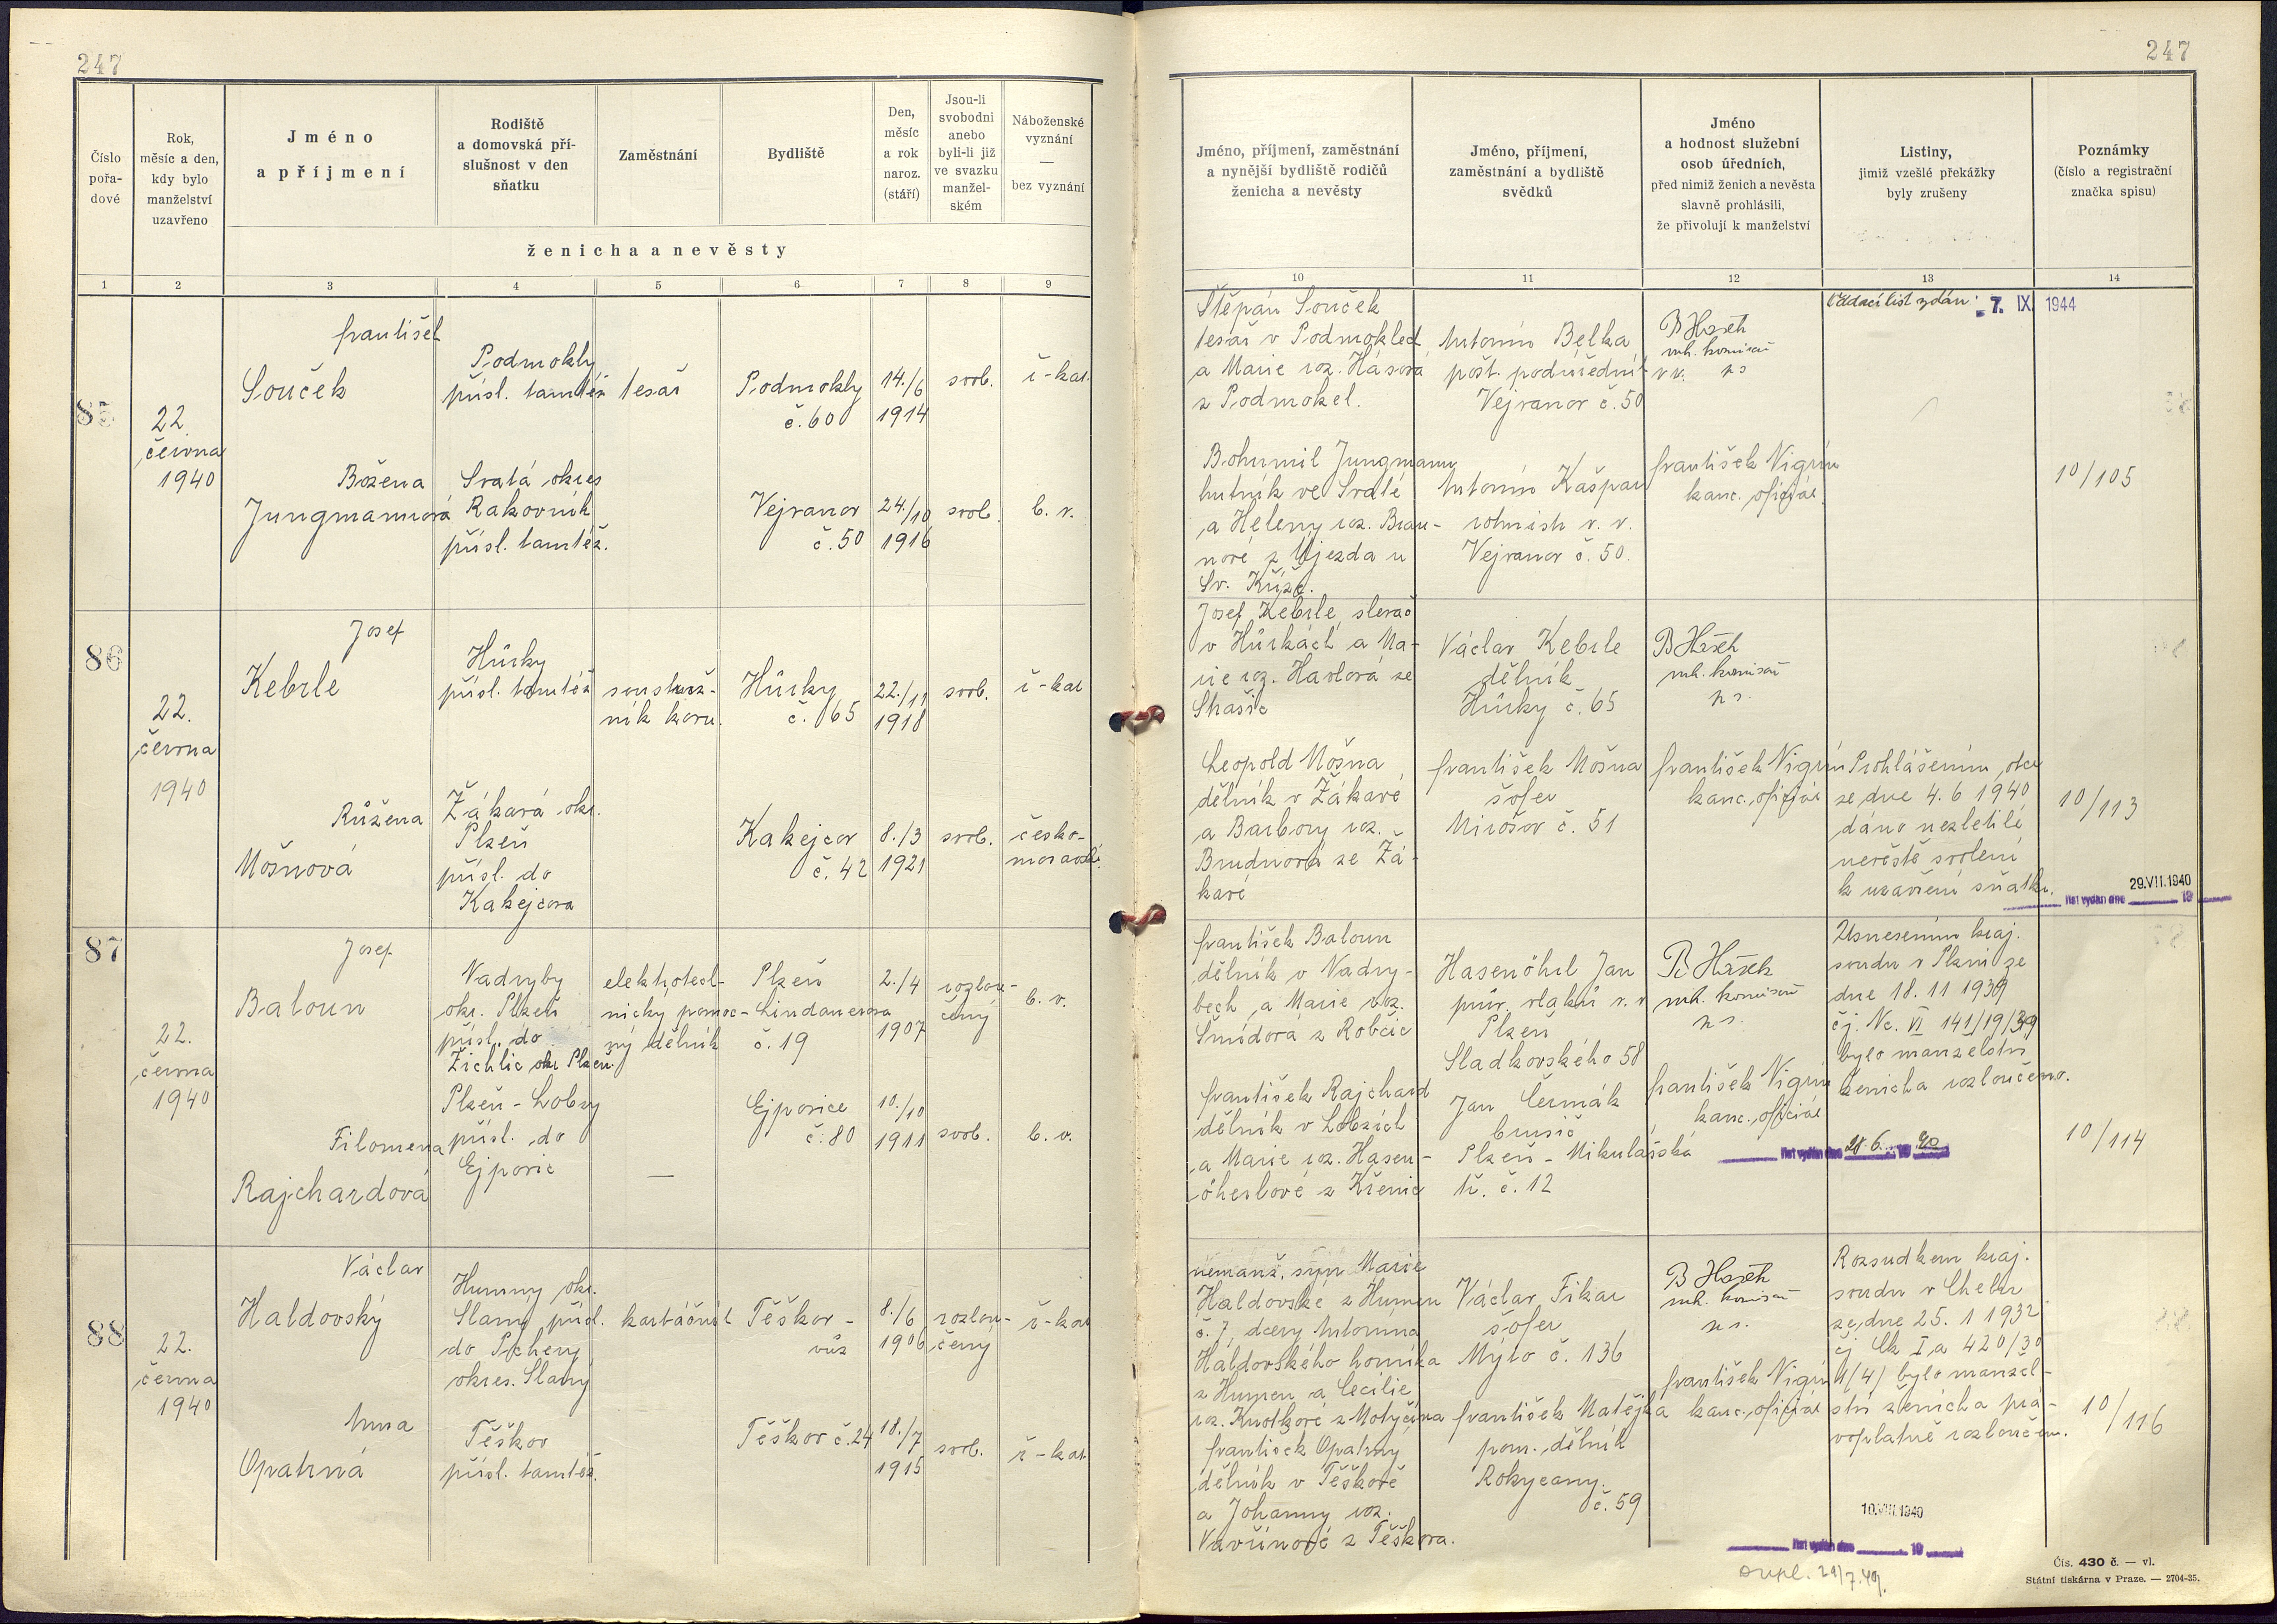 247
247
Číslo pořadové
Rok, měsíc a den, kdy bylo manželství uzavřeno
Jméno a příjmení
Rodiště a domovská příslušnost v den sňatku
Zaměstnání
Bydliště
Den, měsíc a rok naroz. (stáří)
Jsou-li svobodni anebo byli-li již ve svazku manželském
Náboženské vyznání — bez vyznání
ženicha a nevěsty
1 2 3 4 5 6 7 8 9
85
22.
června
1940
František
Souček
Podmokly
přísl. tamtéž
tesař
Podmokly
č. 60
14./6
1914
svob.
ř-kat.
Božena
Jungmannová
Svatá okres
Rakovník
přísl. tamtéž.
Vejvanov
č. 50
24./10
1916
svob.
b. v.
86
22.
června
1940
Josef
Kebrle
Hůrky
přísl. tamtéž
soustruž-
ník kovu.
Hůrky
č. 65
22./11
1918
svob.
ř-kat
Růžena
Mošnová
Žákavá okr.
Plzeň
přísl. do
Kakejcova
Kakejcov
č. 42
8./3
1921
svob.
česko-
moravské.
87
22.
června
1940
Josef
Baloun
Nadryby
okr. Plzeň
přísl. do
Žichlic okr Plzeň.
elektrotech-
nický pomoc-
ný dělník
Plzeň
Lindauerova
č. 19
2./4
1907
rozlou-
čený
b. v.
Filomena
Rajchardová
Plzeň - Lobzy
přísl. do
Ejpovic
—
Ejpovice
č. 80
10./10
1911
svob.
b. v.
88
22.
června
1940
Václav
Haldovský
Humny okr.
Slaný přísl.
do Pcheny
okres. Slaný
kartáčník
Těškov -
vůz
8./6
1906
rozlou-
čený
ř-kat
Anna
Opatrná
Těškov
přísl. tamtéž.
Těškov č. 24
18./7
1915
svob.
ř-kat
Jméno, příjmení, zaměstnání a nynější bydliště rodičů ženicha a nevěsty
Jméno, příjmení, zaměstnání a bydliště svědků
Jméno a hodnost služební osob úředních, před nimiž ženich a nevěsta slavně prohlásili, že přivolují k manželství
Listiny, jimiž vzešlé překážky byly zrušeny
Poznámky (číslo a registrační značka spisu)
10 11 12 13 14
Štěpán Souček
tesař v Podmoklech
a Marie roz. Hásová
z Podmokel.
Antonín Bělka
pošt. podúředník
v v.
Vejvanov č. 50
B Hašek
rn.
Oddací list vydán: 7. IX. 1944
Bohumil Jungmann
hutník ve Svaté
a Heleny roz. Brau-
nové z Újezda u
Sv. Kříže.
Antonín Kašpar
rolník v. v.
Vejvanov č. 50.
František Nigrin
kanc. oficiál.
10/105
Josef Kebrle, slevač
v Hůrkách a Ma-
rie roz. Havlová ze
Strašic
Václav Kebrle
dělník
Hůrky č. 65
B Hašek
Leopold Mošna
dělník v Žákavé
a Barbory roz.
Brudnová ze Žá-
kavé
František Mošna
šofer
Mirošov č. 51
František Nigrin
kanc. oficiál
Prohlášením otce
ze dne 4. 6 1940
dáno nezletilé
nevěstě svolení
k uzavření sňatku.
10/113
29.VII.1940
list vydán dne 19
František Baloun
dělník v Nadry-
bech a Marie roz.
Šmídová z Robčic
Hasenöhrl Jan
prův. vlaků v. v
Plzeň
Sladkovského 58
B Hašek
Usnesením kraj.
soudu v Plzni ze
dne 18. 11 1939
čj. Nc. VI 141/19/39
bylo manželství
ženicha rozloučeno.
František Rajchard
dělník v Lobzích
a Marie roz. Hasen-
öherlové z Křenic
Jan Čermák
brusič
Plzeň - Mikulášská
tř. č. 12
František Nigrin
kanc. oficiál
list vydán dne 28. 6. 1940
10/114
nemanž. syn Marie
Haldovské z Humen
č. 7, dcery Antonína
Haldovského horníka
z Humen a Cecilie
roz. Knotkové z Motyčína
Václav Fikar
šofer
Mýto č. 136
B Hašek
Rozsudkem kraj.
soudu v Chebu
ze dne 25. 1 1932
čj Ck I a 420/30
1/4) bylo manžel-
ství ženicha prá-
voplatně rozloučeno.
František Opatrný
dělník v Těškově
a Johanny roz.
Vavřinové z Těškova.
František Matějka
pom. dělník
Rokycany
č. 59
František Nigrin
kanc. oficiál
10/116
10.VIII.1940
list vydán dne 19
dupl. 29/7.49.
Čís. 430 č. — vl.
Státní tiskárna v Praze. — 2704-35.